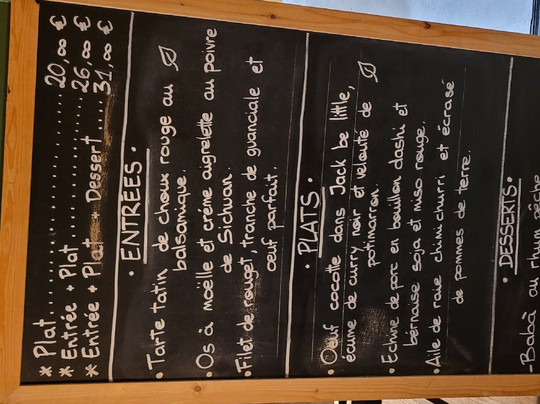 * Plat.................... 20,00 €
* Entrée + Plat ............. 26,00 €
* Entrée + Plat + Dessert ... 31,00 €
• ENTRÉES •
• Tarte tatin de choux rouge au
balsamique.
• Os à moëlle et crème aigrelette au poivre
de Sichuan.
• Filet de rouget, tranche de guanciale et
oeuf parfait.
• PLATS •
• Oeuf cocotte dans Jack be little,
écume de curry noir et velouté de
potimarron.
• Echine de porc en bouillon dashi et
béarnaise soja et miso rouge.
• Aile de raie chimichurri et écrasé
de pommes de terre.
• DESSERTS •
-Babâ au rhum pêche